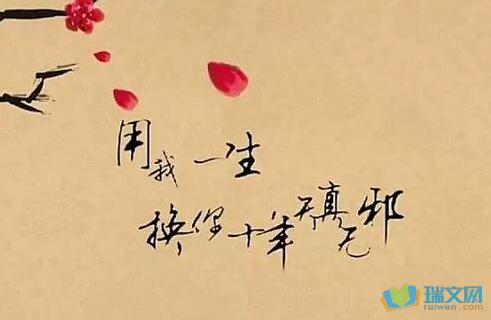 用我一生
换你十年天真无邪
瑞文网
ruiwen.com